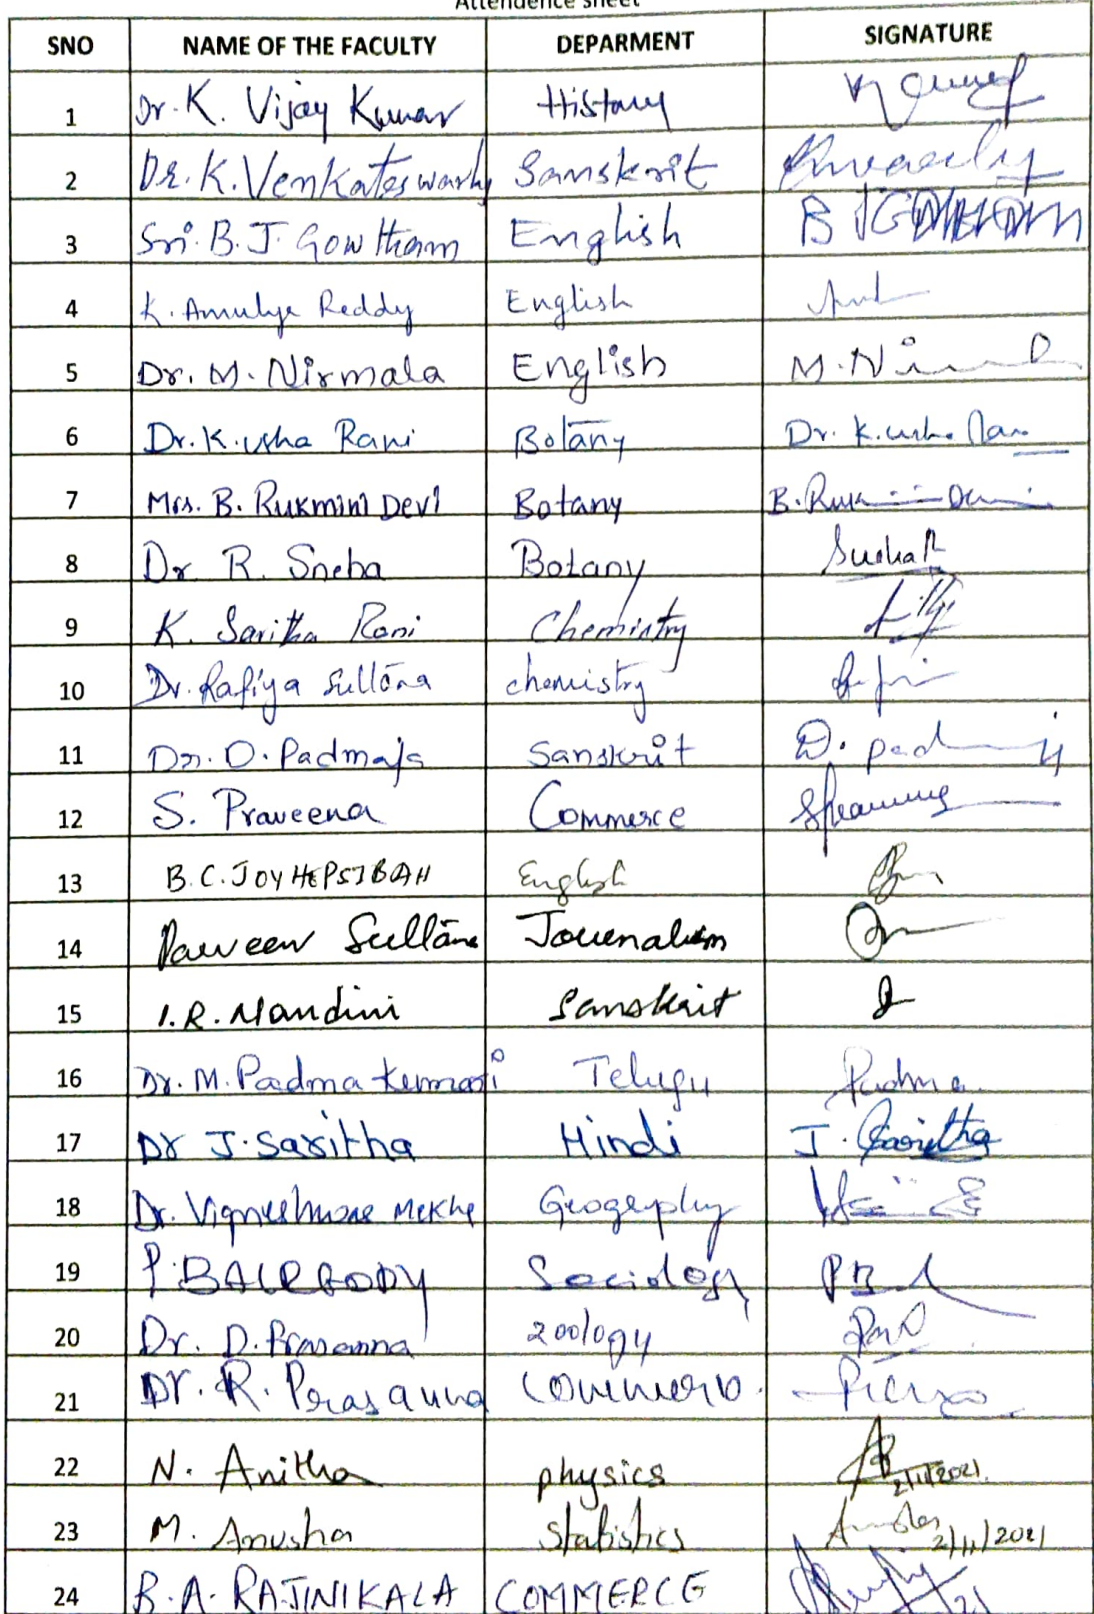 Attendence Sheet
SNO NAME OF THE FACULTY DEPARMENT SIGNATURE
1 Dr. K. Vijay Kumar History
2 Dr. K. Venkateswarlu Sanskrit
3 Sri. B. J. Gowtham English B J GOWTHAM
4 K. Amulya Reddy English
5 Dr. M. Nirmala English M. Ni
6 Dr. K. Usha Rani Botany Dr. K. Usha Rani
7 Mrs. B. Rukmini Devi Botany B. Ruk
8 Dr R. Sneha Botany
9 K. Saritha Rani Chemistry
10 Dr. Rafiya Sultana chemistry
11 Dr. D. Padmaja Sanskrit D. Padmaja
12 S. Praveena Commerce
13 B.C. JOY HEPSIBAH English
14 Parveen Sultana Journalism
15 I.R. Nandini Sanskrit
16 Dr. M. Padma Kumari Telugu Padma
17 Dr J. Saritha Hindi J. Saritha
18 Dr. Vigneshwar Mekhe Geography
19 P. Sociology PB
20 Dr. D. Prasanna Zoology
21 Dr. R. Prasanna Commerce
22 N. Anitha physics 2/11/2021
23 M. Anusha Statistics 2/11/2021
24 B. A. RAJINIKALA COMMERCE